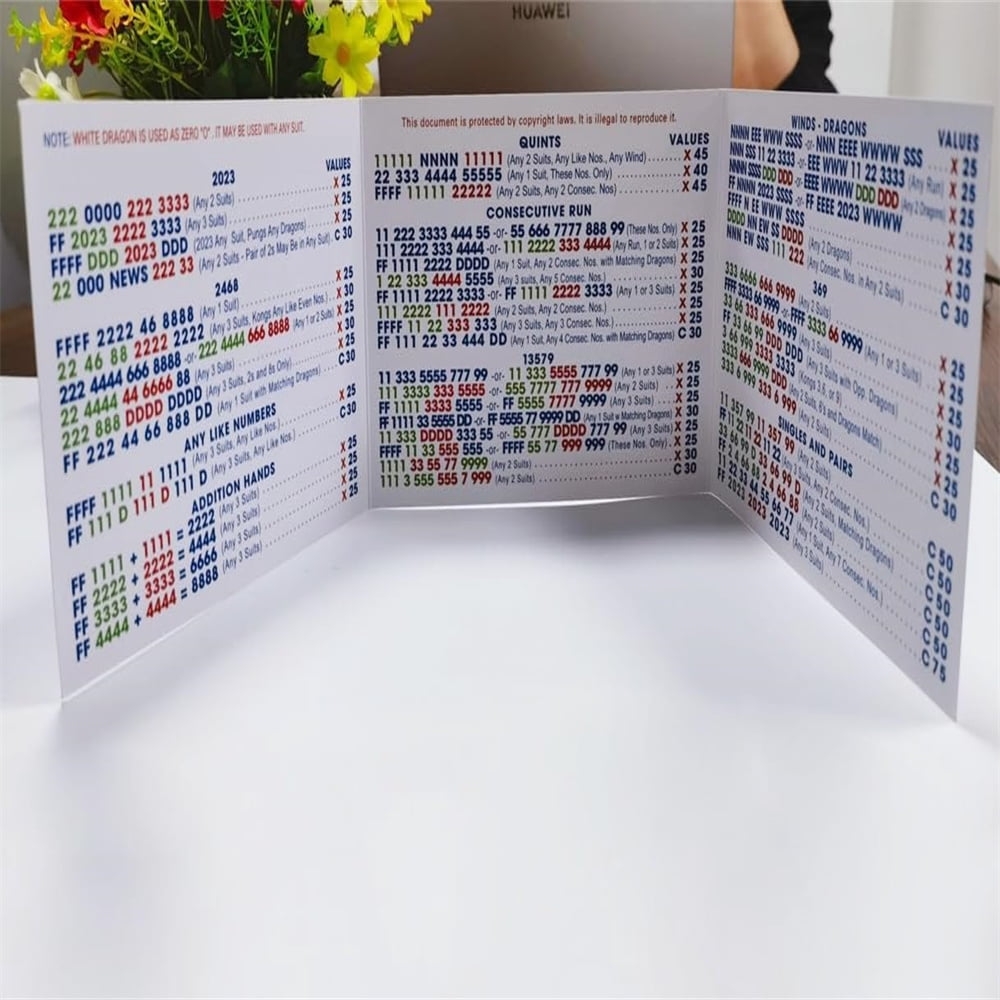 HUAWEI
NOTE: WHITE DRAGON IS USED AS ZERO "0". IT MAY BE USED WITH ANY SUIT.
VALUES
2023
222 0000 222 3333 (Any 2 Suits) X 25
FF 2023 2222 3333 (Any 3 Suits) X 25
FFFF DDD 2023 DDD (2023 Any Suit, Pungs Any Dragons) X 25
22 000 NEWS 222 33 (Any 2 Suits - Pair of 2s May be in Any Suit) C 30
2468
FFFF 2222 46 8888 (Any 1 Suit) X 25
22 46 88 2222 2222 (Any 3 Suits, Kongs Any Like Even Nos.) X 25
222 4444 666 8888 -or- 222 4444 666 8888 (Any 1 or 2 Suits) X 25
22 4444 44 6666 88 (Any 3 Suits) X 30
222 888 DDDD DDDD (Any 3 Suits, 2s and 8s Only) X 25
FF 222 44 66 888 DD (Any 1 Suit with Matching Dragons) C 30
ANY LIKE NUMBERS
FFFF 1111 11 1111 (Any 3 Suits, Any Like Nos.) X 30
FF 111 D 111 D 111 D (Any 3 Suits, Any Like Nos.) C 30
ADDITION HANDS
FF 1111 + 1111 = 2222 (Any 3 Suits) X 25
FF 2222 + 2222 = 4444 (Any 3 Suits) X 25
FF 3333 + 3333 = 6666 (Any 3 Suits) X 25
FF 4444 + 4444 = 8888 (Any 3 Suits) X 25
This document is protected by copyright laws. It is illegal to reproduce it.
QUINTS VALUES
11111 NNNN 11111 (Any 2 Suits, Any Like Nos., Any Wind) X 45
22 333 4444 55555 (Any 1 Suit, These Nos. Only) X 40
FFFF 11111 22222 (Any 2 Suits, Any 2 Consec. Nos) X 45
CONSECUTIVE RUN
11 222 3333 444 55 -or- 55 666 7777 888 99 (These Nos. Only) X 25
111 2222 333 4444 -or- 111 2222 333 4444 (Any Run, 1 or 2 Suits) X 25
FF 1111 2222 DDDD (Any 1 Suit, Any 2 Consec. Nos. with Matching Dragons) X 25
1 22 333 4444 5555 (Any 3 suits, Any 5 Consec. Nos.) X 30
FF 1111 2222 3333 -or- FF 1111 2222 3333 (Any 1 or 3 Suits) X 25
111 2222 111 2222 (Any 2 Suits, Any 2 Consec. Nos.) X 25
FFFF 11 22 333 333 (Any 3 Suits, Any 3 Consec. Nos.) X 25
FF 111 22 33 444 DD (Any 1 Suit, Any 4 Consec. Nos. with Matching Dragons) C 30
13579
11 333 5555 777 99 -or- 11 333 5555 777 99 (Any 1 or 3 Suits) X 25
111 3333 333 5555 -or- 555 7777 777 9999 (Any 2 Suits) X 25
FF 1111 3333 5555 -or- FF 5555 7777 9999 (Any 3 Suits) X 25
FF 1111 33 5555 DD -or- FF 5555 77 9999 DD (Any 1 Suit w Matching Dragons) X 30
11 333 DDDD 333 55 -or- 55 777 DDDD 777 99 (Any 3 Suits) X 25
FFFF 11 33 555 555 -or- FFFF 55 77 999 999 (These Nos. Only) X 30
1111 33 55 77 9999 (Any 2 Suits) X 30
111 3 555 555 7 999 (Any 2 Suits) C 30
WINDS - DRAGONS VALUES
NNNN EEE WWW SSSS -or- NNN EEEE WWWW SSS X 25
NNN SSS 11 22 3333 -or- EEE WWW 11 22 3333 (Any Run) X 25
NNN SSSS DDD DDD -or- EEE WWWW DDD DDD (Any 2 Dragons) X 25
FF NNNN 2023 SSSS -or- FF EEEE 2023 WWWW X 25
FFFF N EE WWW SSSS X 25
DDDD NN EW SS DDDD (Any 2 Dragons) X 30
NNN EW SSS 111 222 (Any Consec. Nos. in Any 2 Suits) C 30
369
333 6666 666 9999 (Any 2 Suits) X 25
FFFF 3333 66 9999 -or- FFFF 3333 66 9999 (Any 1 or 3 Suits) X 25
33 66 333 666 9999 (Any 3 Suits)
FF 33 66 99 DDD DDD (Any 3 Suits with Opp. Dragons)
33 666 999 3333 3333 (Kongs 3,6, or 9)
3333 666 9999 DDD (Any 2 Suits, 6's and Dragons Match)
333 6 999 333 6 999 (Any 2 Suits) C 30
SINGLES AND PAIRS
11 357 99 11 357 99 (Any 2 Suits) C 50
FF 11 22 11 22 11 22 (Any 3 Suits, Any 2 Consec. Nos.) C 50
(Any 2 Suits, Matching Dragons) C 50
FF 22 46 88 22 46 88 (Any 2 Suits) C 50
(Any 1 Suit, Any 7 Consec. Nos.) C 50
FF 2023 2023 2023 (Any 3 Suits) C 75